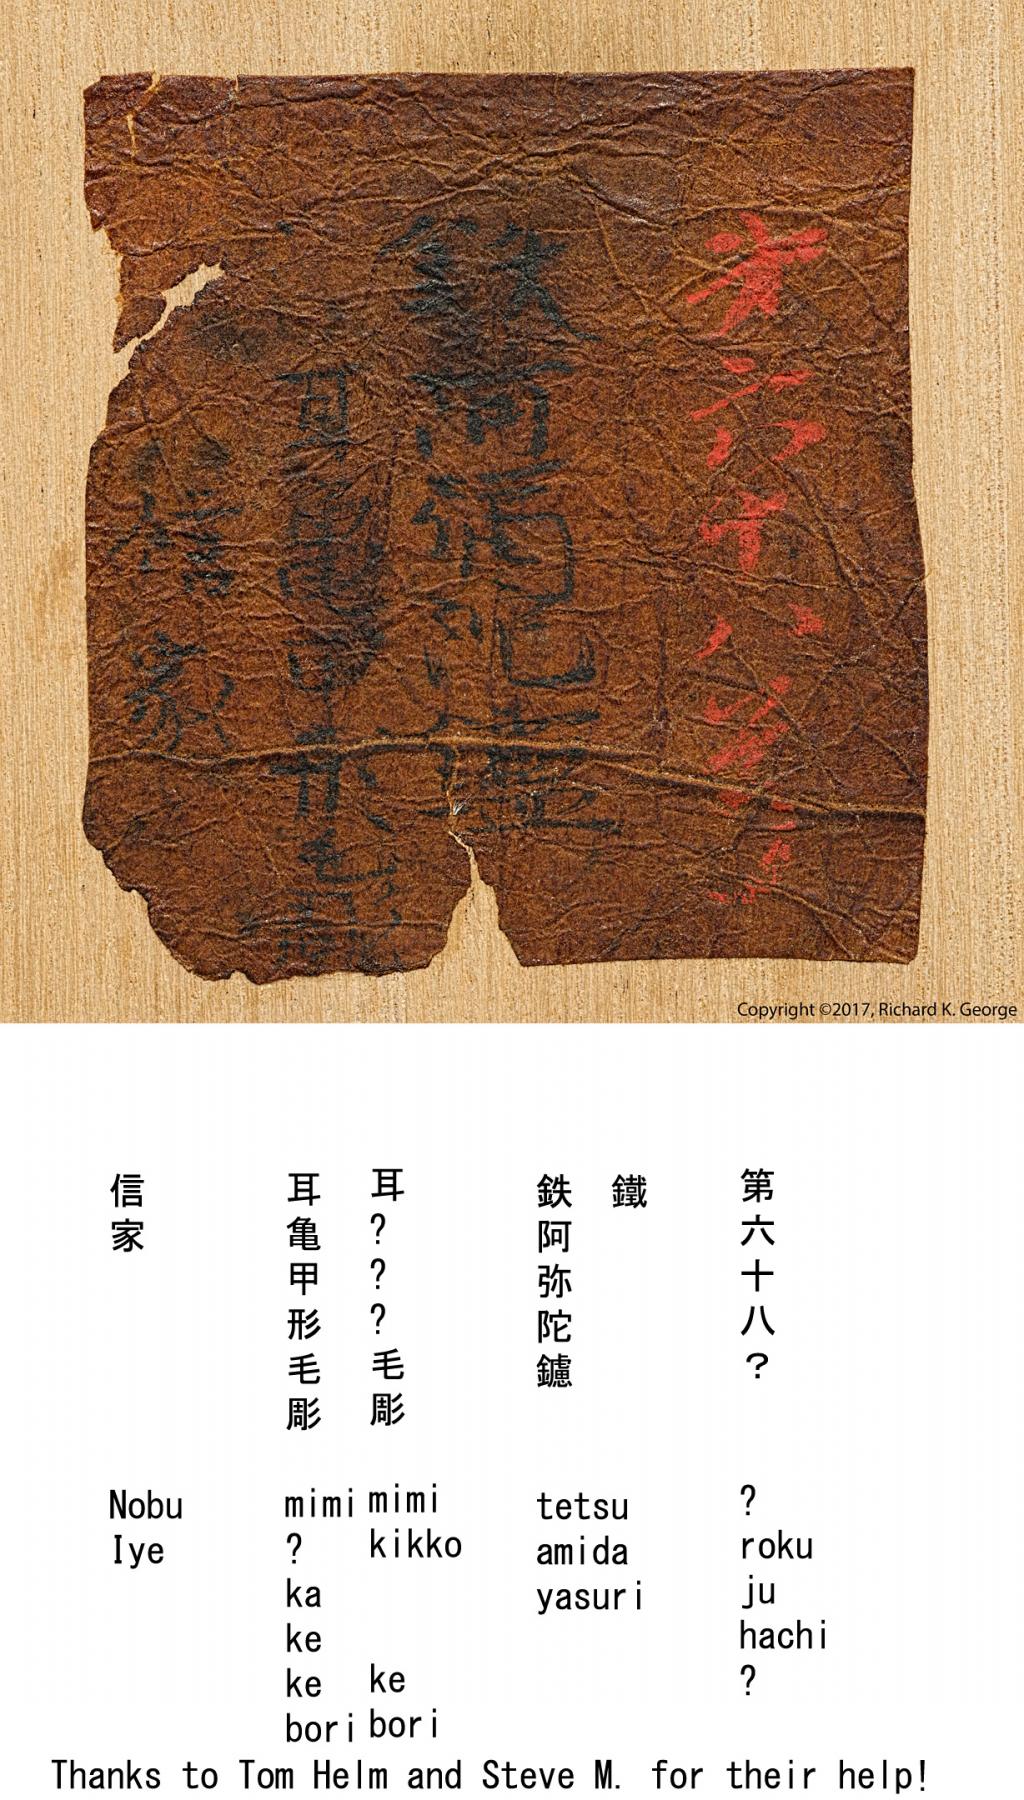 鉄阿弥陀鑢
信家
Copyright ©2017, Richard K. George
第六十八？
鐵
鉄阿弥陀鑢
耳???毛彫
耳亀甲形毛彫
信家
?
roku
ju
hachi
?
tetsu
amida
yasuri
mimi
kikko
ke
bori
mimi
?
ka
ke
ke
bori
Nobu
Iye
Thanks to Tom Helm and Steve M. for their help!